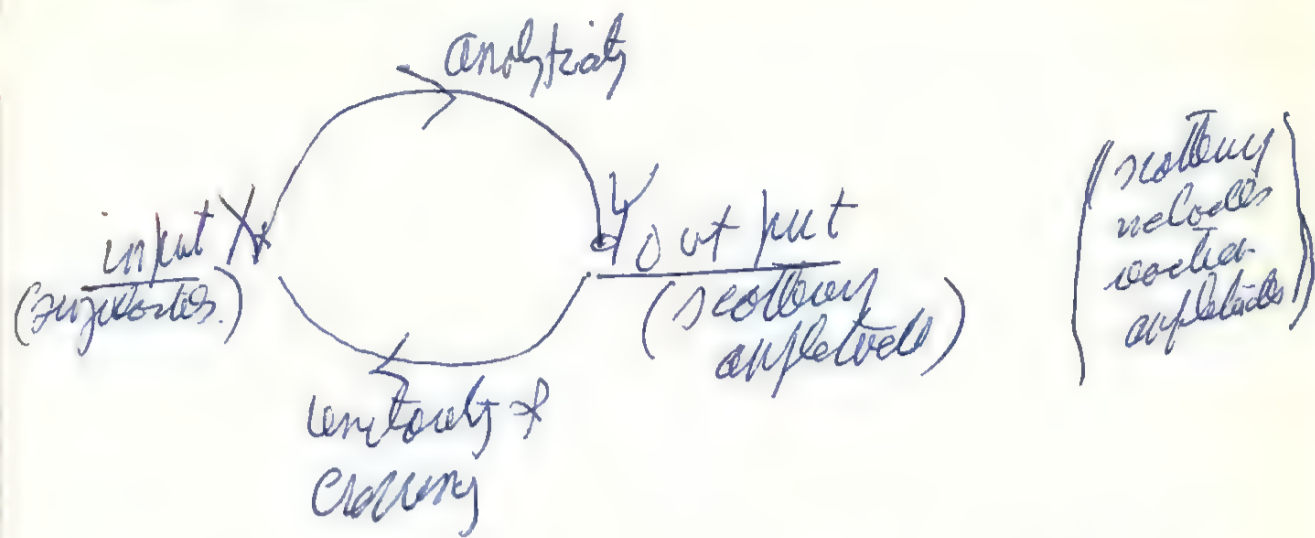 analyticity
input X
(singularities.)
Y output
(scattering
amplitude)
unitarity +
crossing
(scattering
includes
reaction
amplitudes)